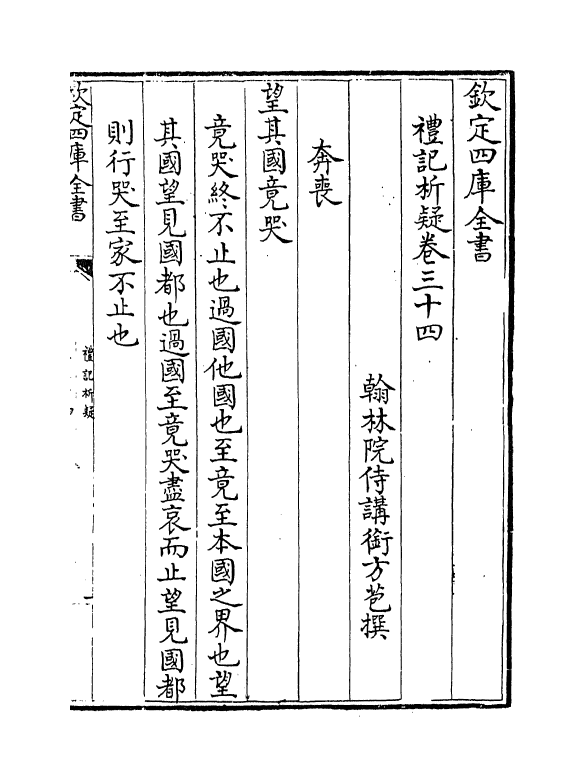 欽定四庫全書
禮記析疑卷三十四
翰林院侍講銜方苞撰
奔喪
望其國竟哭
竟哭終不止也過國他國也至竟至本國之界也望
其國望見國都也過國至竟哭盡哀而止望見國都
則行哭至家不止也
欽定四庫全書
禮記析疑